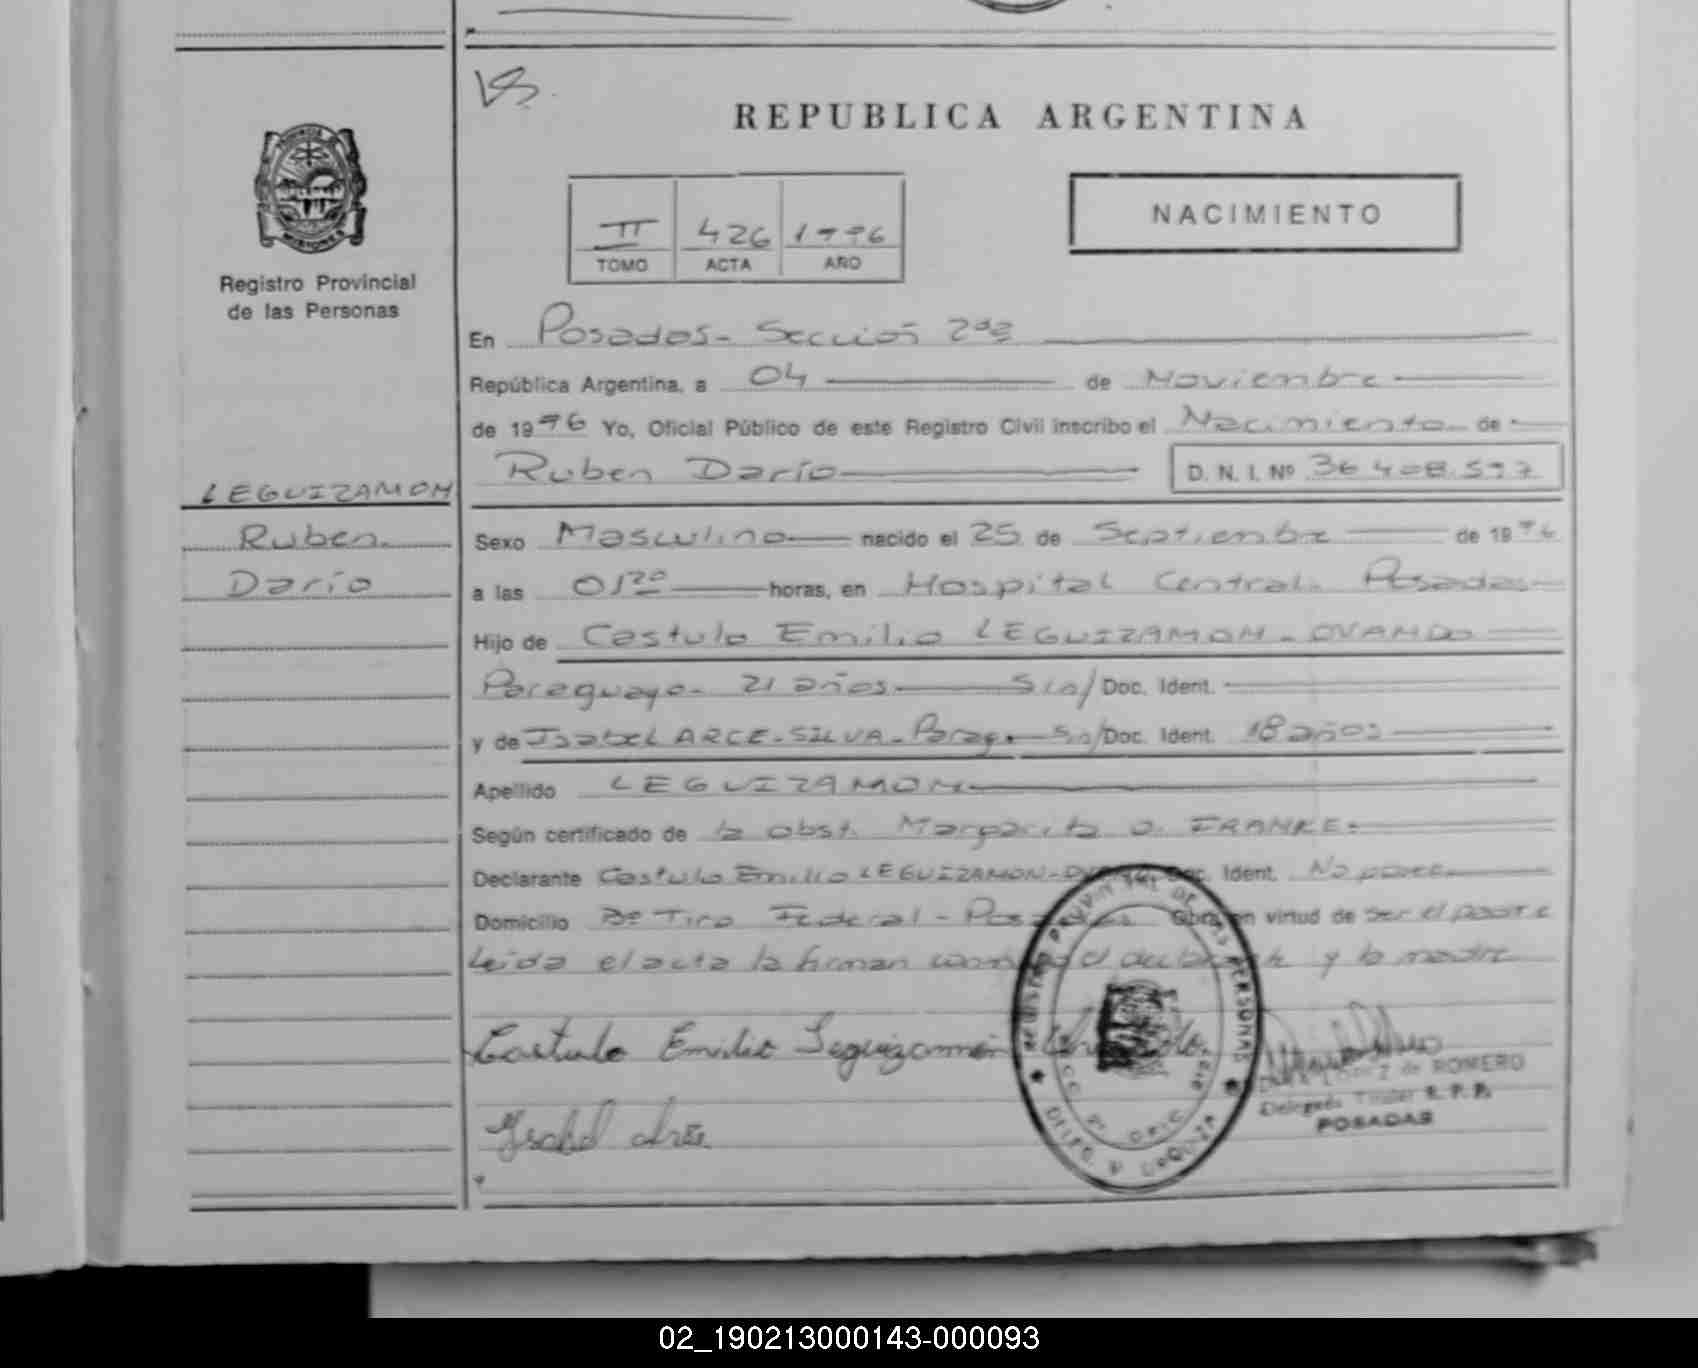 REPUBLICA ARGENTINA
PROVINCIA
MISIONES
Registro Provincial
de las Personas
II 426 1996
TOMO ACTA AÑO
NACIMIENTO
En Posadas - Sección 2da
República Argentina, a 04 de Noviembre
de 1996 Yo, Oficial Público de este Registro Civil inscribo el Nacimiento de
Ruben Darío D. N. I. Nº 36.408.597
LEGUIZAMON
Ruben
Darío
Sexo Masculino nacido el 25 de Septiembre de 1996
a las 01 20 horas, en Hospital Central. Posadas
Hijo de Castulo Emilio LEGUIZAMON - OVANDO
Paraguayo - 21 años Sin/ Doc. Ident.
y de Isabel ARCE - SILVA - Parag. Sin/Doc. Ident. 18 años
Apellido LEGUIZAMON
Según certificado de la obst. Margarita O. FRANKE.
Declarante Castulo Emilio LEGUIZAMON - Doc. Ident. No posee
Domicilio Bº Tiro Federal - Posadas Obra en virtud de ser el padre
Leida el acta la firman conmigo el declarante y la madre
Castulo Emilio Leguizamón
Isabel Arce
REGISTRO PROVINCIAL DE LAS PERSONAS
DELEG. V. URQUIZA
de ROMERO
Delegada Titular R. P. P.
POSADAS
02_190213000143-000093